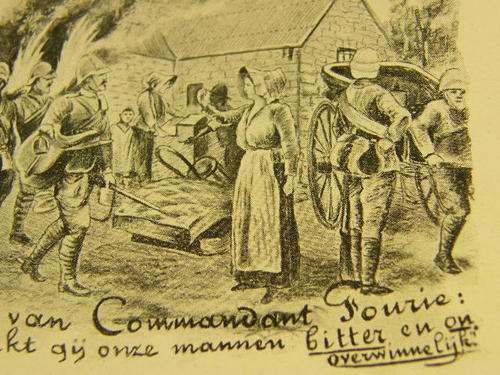 van Commandant Fourie:
kt gij onze mannen bitter en on-
overwinnelijk.